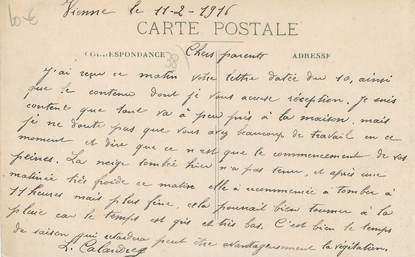 Vienne le 11-2-1916
CARTE POSTALE
CORRESPONDANCE
Chers parents
ADRESSE
J'ai reçu ce matin votre lettre datée du 10, ainsi
que le contenu dont je vous accuse réception. Je suis
content que tout va à peu près à la maison, mais
je ne doute pas que vous avez beaucoup de travail en ce
moment et dire que ce n est que le commencement de vos
peines. La neige tombée hier n'a pas tenu, et après une
matinée très froide ce matin elle à recommencée à tomber à
11 heures mais plus fine, elle pourrait bien tourner à la
pluie car le temps est gris et très bas. C'est bien le temps
de saison qui retardera peut être avantageusement la végétation.